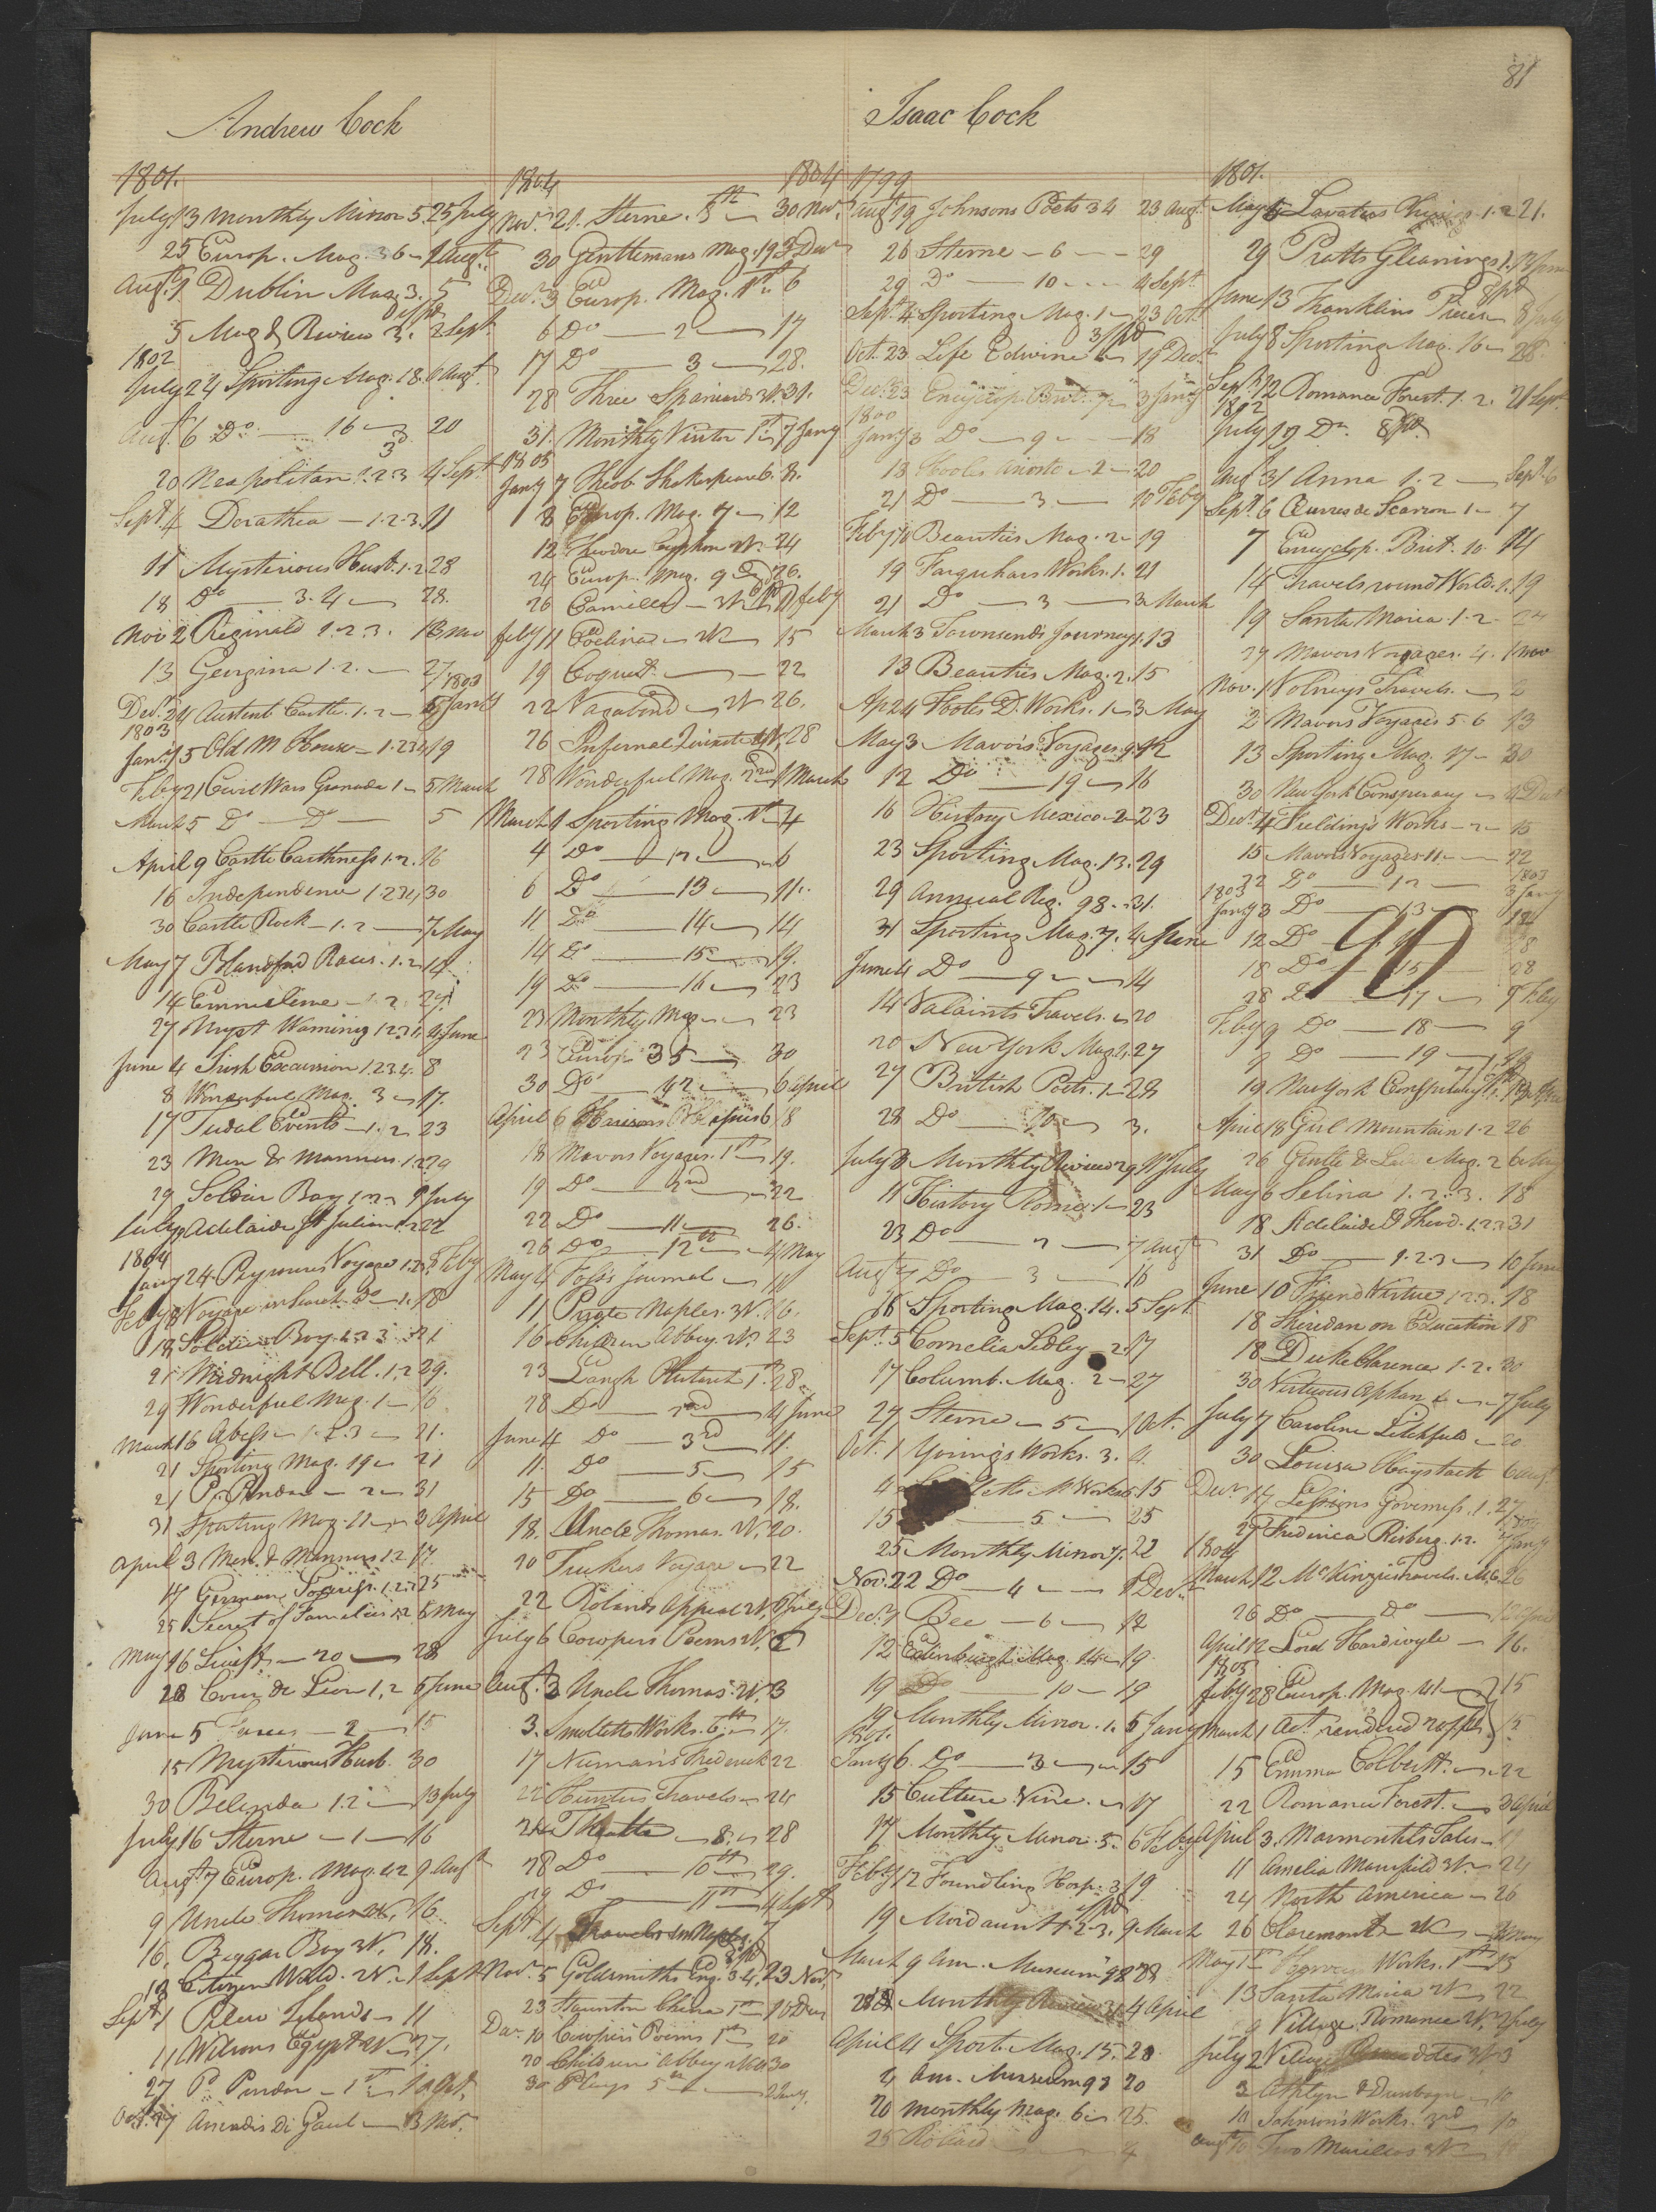 81
Andrew Cock
1801.
July 13 Monthly Mirror 5. 25 July
25 Europ. Mag. 36 1 Augt
Augt 1 Dublin Mag. 3. 5
5 Mag & Review 3. 2 Sept
1802
July 24 Sporting Mag. 18. 6 Augt.
Augt. 6 Do. 16 20
20 Neapolitan 1.2.3 4 Sept
Sept. 4 Dorathea 1.2.3. 11
11 Mysterious Husb. 1.2 28
18 Do 3.4 28.
Nov 2 Reginald 1.2.3. 13 Nov
13 Georgina 1.2. 27
1803
Decr. 24 Austenb Castle. 1.2 5 Jany
1803
Jany. 15 Old M House 1.2.3.4 19
Feby 21 Civil Wars Granada 1 5 March
March 5 Do Do 5
April 9 Castle Caithness 1.2. 16
16 Independence 1.2.3.4 30
30 Castle Rock 1.2 7 May
May 7 Blandford Races. 1.2. 14
14 Emmeline 1.2. 27.
27 Myst Warning 1.2.3.4 4 June
June 4 Irish Excursion 1.2.3.4. 8
8 Wonderful Mag. 3 17.
17 Tudal Events 1.2 23
23 Men & Manners. 1.2 29
29 Soldier Boy 1.2.3 9 July
July 9 Adelaide St Julian 1.2 22
1804
Jany 24 Peyrouses Voyage 1.2.3. 8 Feby
Feby 8 Voyage in Search Do 1. 18
18 Soldier Boy 1.2.3 21
21 Midnight Bell. 1.2 29.
29 Wonderful Mag. 1 16
March 16 Abess 1.2.3 21.
21 Sporting Mag. 19 21
21 P. Pindar 2 31
31 Sporting Mag. 11 3 April
April 3 Men & Manners 1.2 17.
17 German 1.2.3 25
25 Secret of Families 1.2 8 May
May 16 Swift 20 28
28 Couer de Lion 1,2 5 June
June 5 Farces 2 15
15 Mysterious Husb. 30
30 Belinda 1.2 13 July
July 16 Sterne 1 16
Augt. 7 Europ. Mag. 42 9 Augt
9 Uncle Thomas 16.
16. Beggar Boy 3V. 18.
18 Citizen World. 2V. 1 Sept
Sept 1 Pelew Islands 11
11 Wilsons Egypt 2V 27.
27 P. Pindar 1st 1 Oct.
Oct. 27 Amadis De Gaul 3 Nov.
1804 1804
Nov. 21. Sterne. 5th 30 Nov.
30 Gentlemans Mag. 19 3 Decr
Decr. 3 Europ. Mag. 1st 6
6 Do 2 17
17 Do 3 28.
28 Three Spaniards 2V. 31.
31. Monthly Visitor 1st 7 Jany
1805
Jany 7 Theob. Shakespeare 6. 8.
8 Europ. Mag. 7 12
12 Theodore Cyphon 2V. 24
24 Europ. Mag. 9 26.
26 Camilla 3V 11 Feby
Feby 11 2V 15
19 Coquet 22
22 Vagabond 2V 26.
26 Infernal Quixote 4V. 28
28 Wonderful Mag. 2nd 1 March
March 1 Sporting Mag. 1st 4
4 Do 12 6
6 Do 13 11.
11 Do 14 14
14 Do 15 19.
19 Do 16 23
23 Monthly Mag 23
23 Europ 35 30
30 Do 42 6 April
April 6 Harrisons 18
18 Mavors Voyages. 1st 19.
19 Do 2nd 22
22 Do 11 26.
26 Do 12th 4 May
May 4 Fosts Journal 11
11 Pirate Naples. 3V. 16.
16 Children Abbey. 2V. 23
23 Langh Plutarch 1st. 28
28 Do 2nd 4 June
June 4 Do 3d 11.
11. Do 5 15
15 Do 6 18.
18. Uncle Thomas. 2V. 20.
20 Tuckers Voyage 22
22 Rolands Appeal 2V. 6 July
July 6 Cowpers Poems 2V.
Augt. 3 Uncle Thomas 2V. 3
3. Smolletts Works. 6th 17.
17 Numans Frederick 22
22 Hunters Travels 24
24 Theatre 8. 28
28 Do 10th 29.
29 Do 11th 4 Sept
Sept. 4 Travels in Naples. 7
Nov. 5 Goldsmiths Eng. 3.4. 23 Nov.
23 Staunton China 1st 10 Decr
Decr. 10 Cowpers Poems 1st 20
20 Childrens Abbey 30
30 Plays 5th 2 Jany.
Isaac Cock
1799
Augt 19 Johnsons Poets 34 23 Augt.
26 Sterne 6 29
29 Do 10 4 Sept
Sept. 4 Sporting Mag. 1 23 Oct
Oct. 23 Life Edwine 19 Decr
Decr. 23 Encyclop. Brit. 7 3 Jany
1800
Jany 3 Do 9 18
18 Hools Ariosto 2 20
21 Do 3 10 Feby
Feby 10 Beauties Mag. 2 19
19 Farquhars Works. 1. 21
21 Do 3 3 March
March 3 Townsends Journey 1. 13
13 Beauties Mag. 2. 15
Ap 24 Foots D. Works. 1 3 May
May 3 Mavors Voyages. 9. 12
12 Do 19 16
16 History Mexico 2 23
23 Sporting Mag. 13. 29
29 Annual Reg. 98. 31.
31 Sporting Mag. 7. 4 June
June 4 Do 9 14
14 Valaints Travels. 20
20 New York Mag 2. 27
27 British Poets. 1 28
28 Do 10 3.
July 3 Monthly Review 29 11 July
11 History Rome. 1 23
23 Do 2 7 Augt
Augt 7 Do 3 16
16 Sporting Mag. 14. 5 Sept
Sept. 5 Cornelia Sedley 2. 17
17 Columb. Mag. 2 27
27 Sterne 5 1 Oct.
Oct. 1 Youngs Works. 3. 4.
4 Works 15
15 5 25
25 Monthly Mirror 22
Nov. 22 Do 4 1 Decr.
Decr. 1 Bee 6 12
12 Edinburgh Mag. 14 19
19 Do 10 19
19 Monthly Mirror. 1. 5 Jany
1801.
Jany 6. Do 3 15
15 Culture Vine. 17
17 Monthly Mirror. 5. 6 Feby
Feby 12 Foundling Hosp. 3 19
19 Mordaunt 1.2.3. 9 March
March 9 Am. Museum 92 28
28 Monthly Review 31 4 April
April 4 Sport. Mag. 15. 20
4 Am. Museum 93 20
20 Monthly Mag. 6 25.
25 4
1801.
May 5 Lavaters 1.2 21.
29 Pratts Gleanings 1. 13 June
June 13 Franklins 8 July
July 8 Sporting Mag. 16 28
Sept 12 Romance Forest. 1.2. 21 Sept
1802
July 17 Do.
Augt 31 Anna 1.2 Sept. 6
Sept. 6 Œuvres de Scarron 1 7
7 Encyclop. Brit. 10. 14
14 Travels round World. 1. 19
19 Santa Maria. 1.2 24
24 Mavors Voyages. 4. 1 Nov
Nov. 1 Volneys Travels. 2
2 Mavors Voyages 5.6 13
13 Sporting Mag. 17 30
30 New York Conspiracy 4 Decr
Decr. 4 Fieldings Works 2 15
15 Mavors Voyages 11 22
22 Do 12 1803 3 Jany
1803
Jany 3 Do 13 12
12 Do 18
18 Do 15 28
28 Do 17 9 Feby
90
Feby 9 Do 18 9
9 Do 19 19
19 New York Conspiracy
April 18 Girl Mountain 1.2 26
26 Gentle & Mag. 2 6 May
May 6 Selina 1.2.3. 18
18 Adelaide & Theod. 1.2.3 31
31 Do 1.2.3 10 June
June 10 Friend Virtue 1.2.3. 18
18 Sheridan on Education 18
18 Duke Clarence 1.2. 30
30 Virtuous Orphan 7 July
July 7 Caroline Litchfield 20
30 Louisa Haystack 6 Augt
Decr. 17 Lessons Governess. 1. 27
27 Frederica Risberg. 1.2. 7 Jany
1804
March 12 McKinzies Travels. 26
26 Do Do 12 April
April 12 Lord Hardivyle 16.
1805
Feby 28 Europ. Mag. 41 15
March 1 Act. rendered
15 Emma Corbett. 22
22 Romance Forest. 3 April
April 3. Marmontels Tales
11 Amelia Mansfield 3V. 24
24 North America 26
26 Claremont
May 1st Works. 1st 13
13 Santa Maria 2V 22
Village Romance 2V. 2 July
July 2 Village 3
3 Athlyn & Dunbayn 10
10 Johnson's Works. 3rd 10
Augt 10 Two Marillos 2V